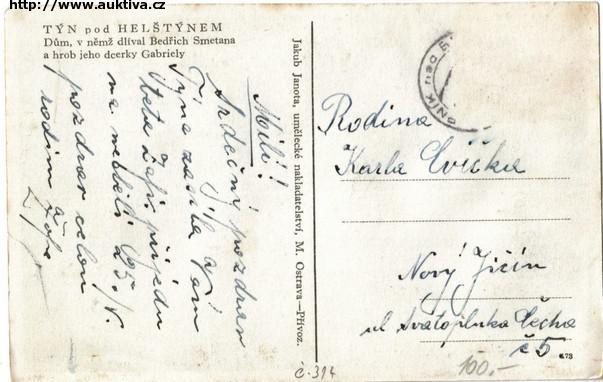 http://www.auktiva.cz
TÝN pod HELŠTÝNEM
Dům, v němž dlíval Bedřich Smetana
a hrob jeho dcerky Gabriely
Milí!
Srdečný pozdrav
z Týna zasílá Vám
teta
přijedu
na neděli 25./V.
pozdrav celou
rodinu
Jakub Janota, umělecké nakladatelství, M. Ostrava—Přívoz.
PNÍK nad
Rodina
Karla Cvíčka
Nový Jičín
ul Svatopluka Čecha
č 5
č. 314
100.-